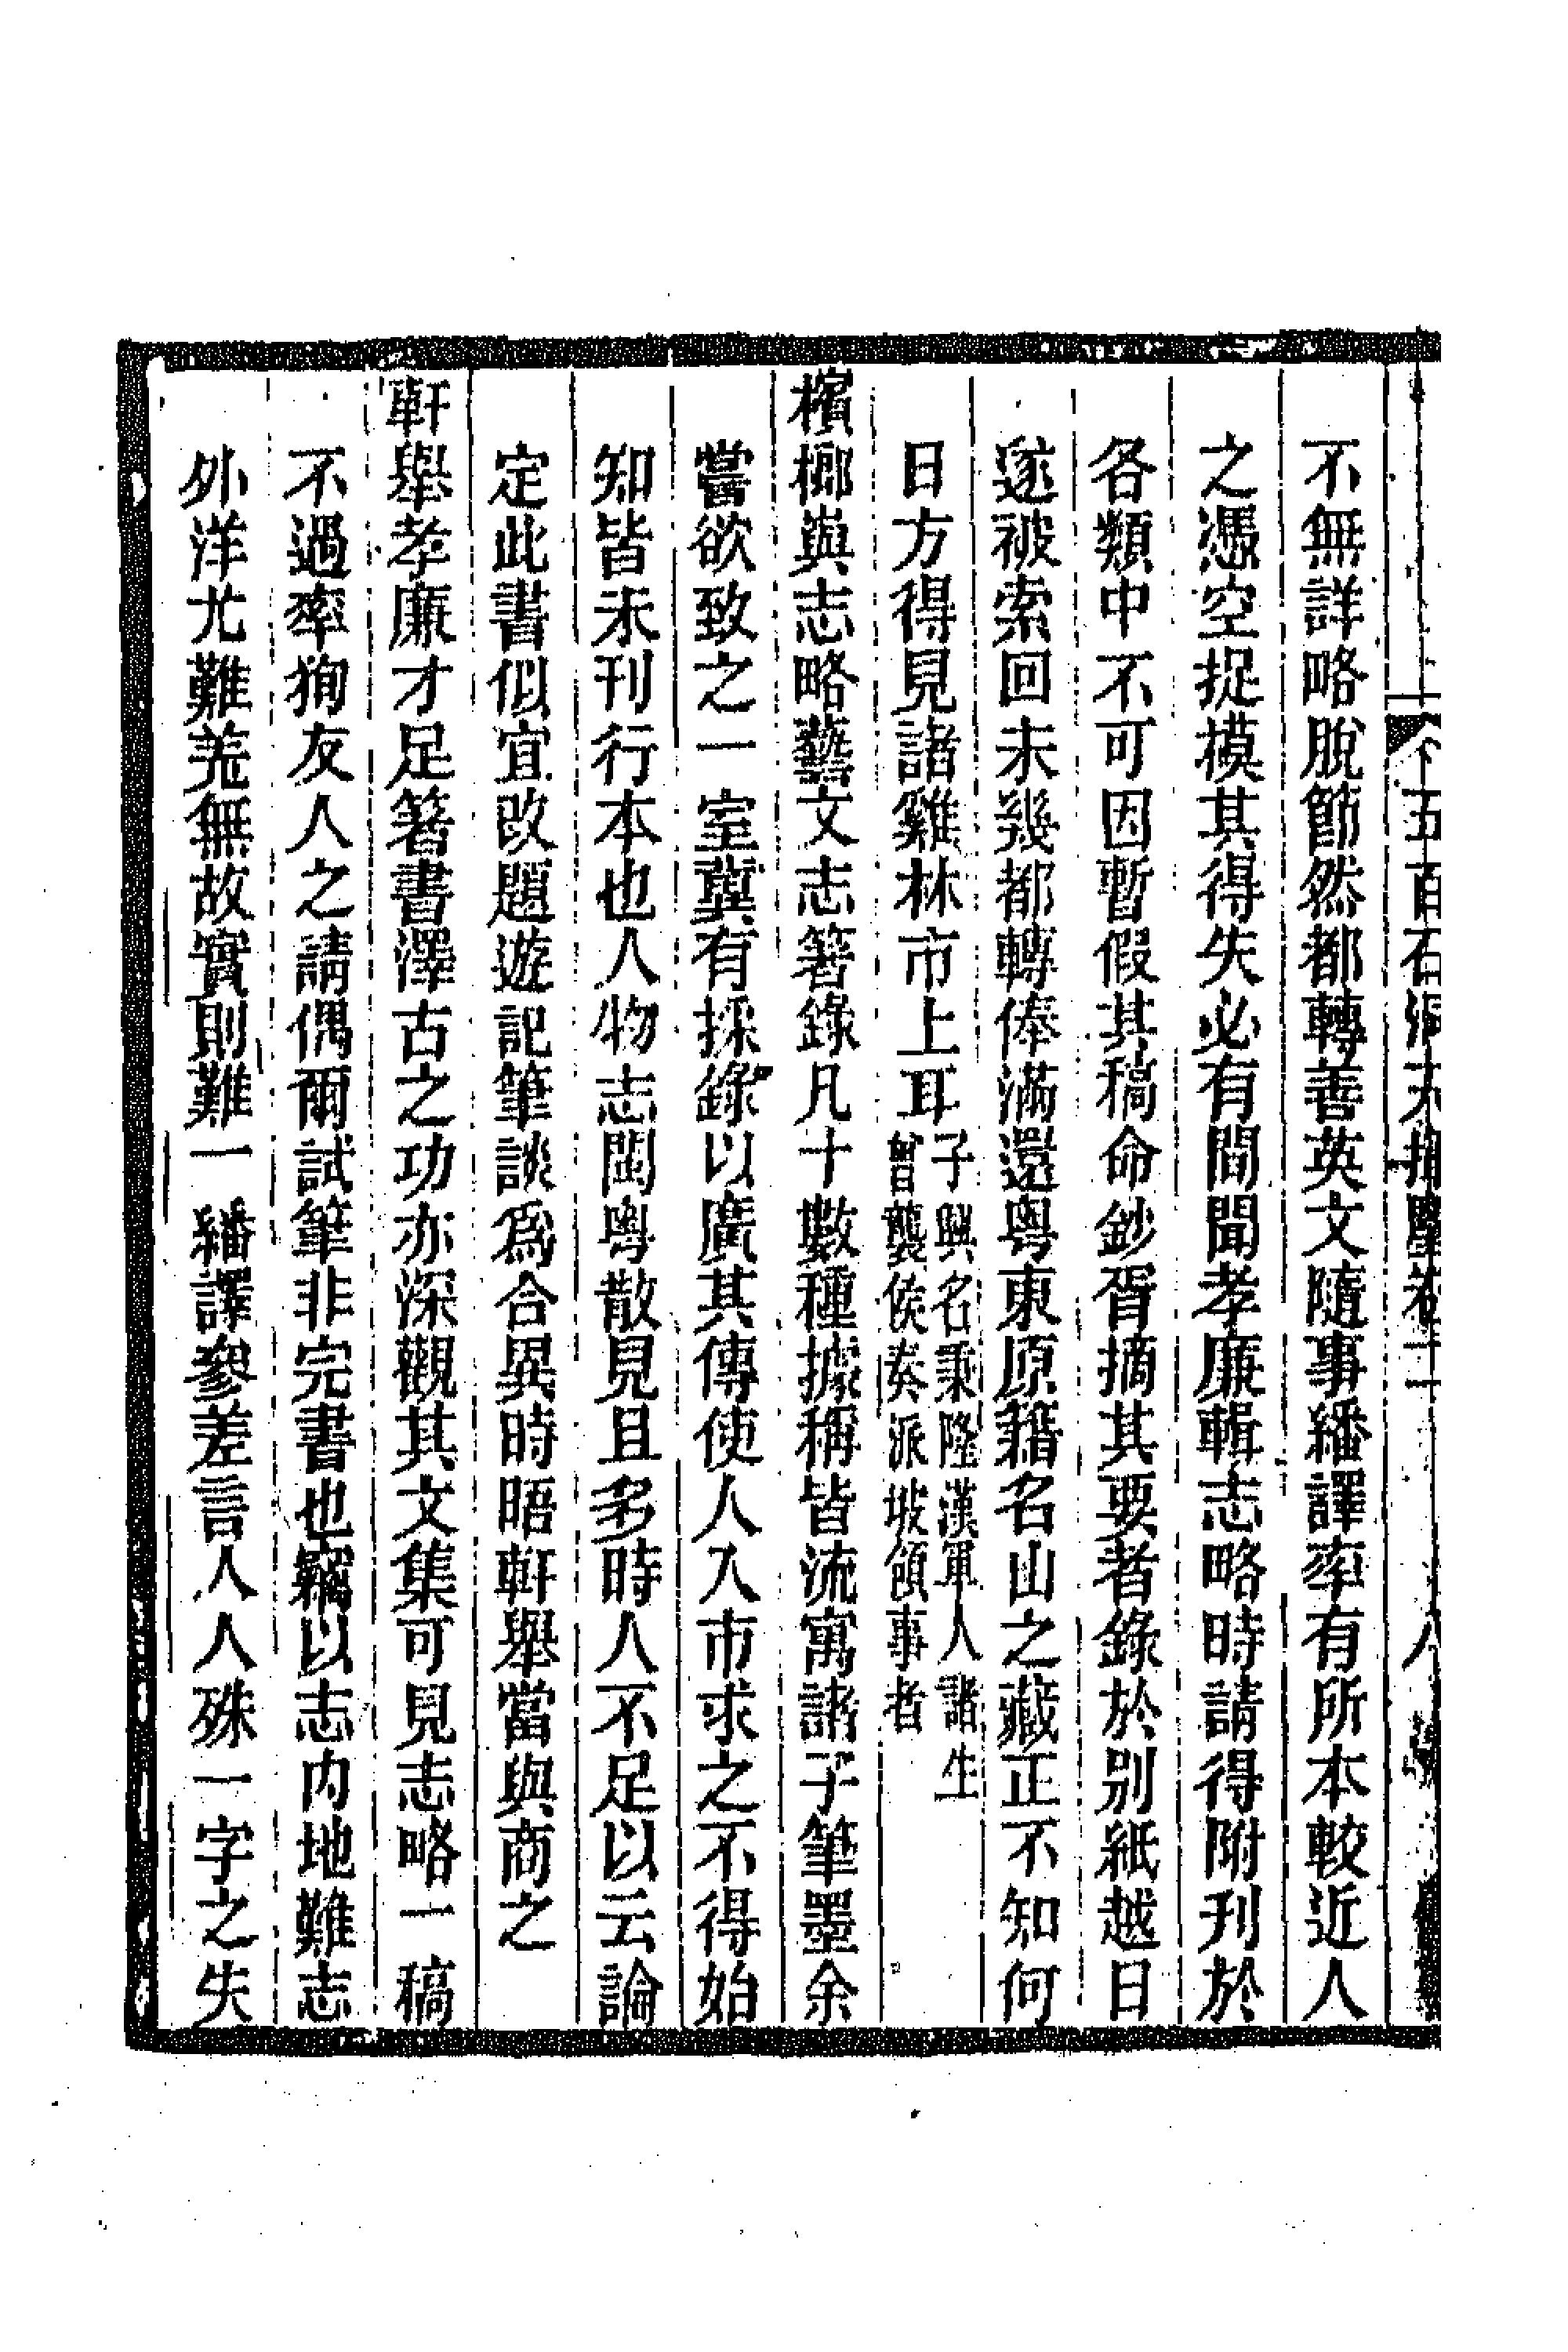 五百石洞天揮麈卷二 八
不無詳略脫節然都轉善英文隨事繙譯率有所本較近人
之憑空捉摸其得失必有間聞孝廉輯志略時請得附刊於
各類中不可因暫假其稿命鈔胥摘其要者錄於別紙越日
遂被索回未幾都轉俸滿還粤東原籍名山之藏正不知何
日方得見諸雞林市上耳子興名秉隆漢軍人諸生曾襲侯奏派坡領事者
檳榔與志略藝文志箸錄凡十數種據稱皆流寓諸子筆墨余
嘗欲致之一室冀有採錄以廣其傳使人入市求之不得始
知皆未刊行本也人物志閩粤散見且多時人不足以云論
定此書似宜改題遊記筆談爲合異時晤軒舉當與商之
軒舉孝廉才足箸書澤古之功亦深觀其文集可見志略一稿
不過率狥友人之請偶爾試筆非完書也竊以志內地難志
外洋尤難羌無故實則難一繙譯參差言人人殊一字之失